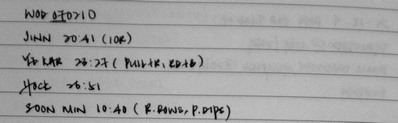 WOD 070210
JINN 20:41 (10K)
YZ KAR 26:27 (PULL+R, RD+B)
HOCK 26:51
SOON MIN 10:40 (R.ROWS, P.DIPS)